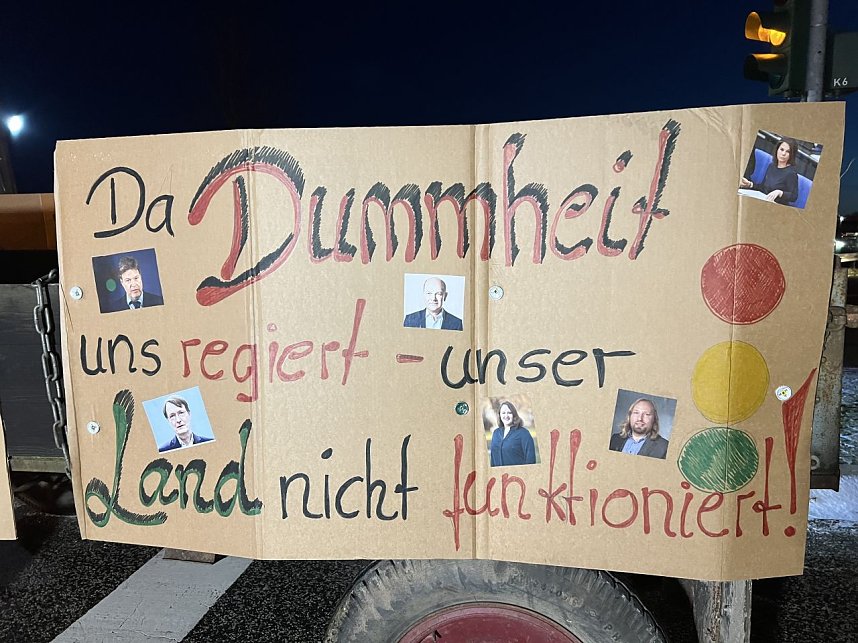 K6
Da Dummheit
uns regiert - unser
Land nicht funktioniert!